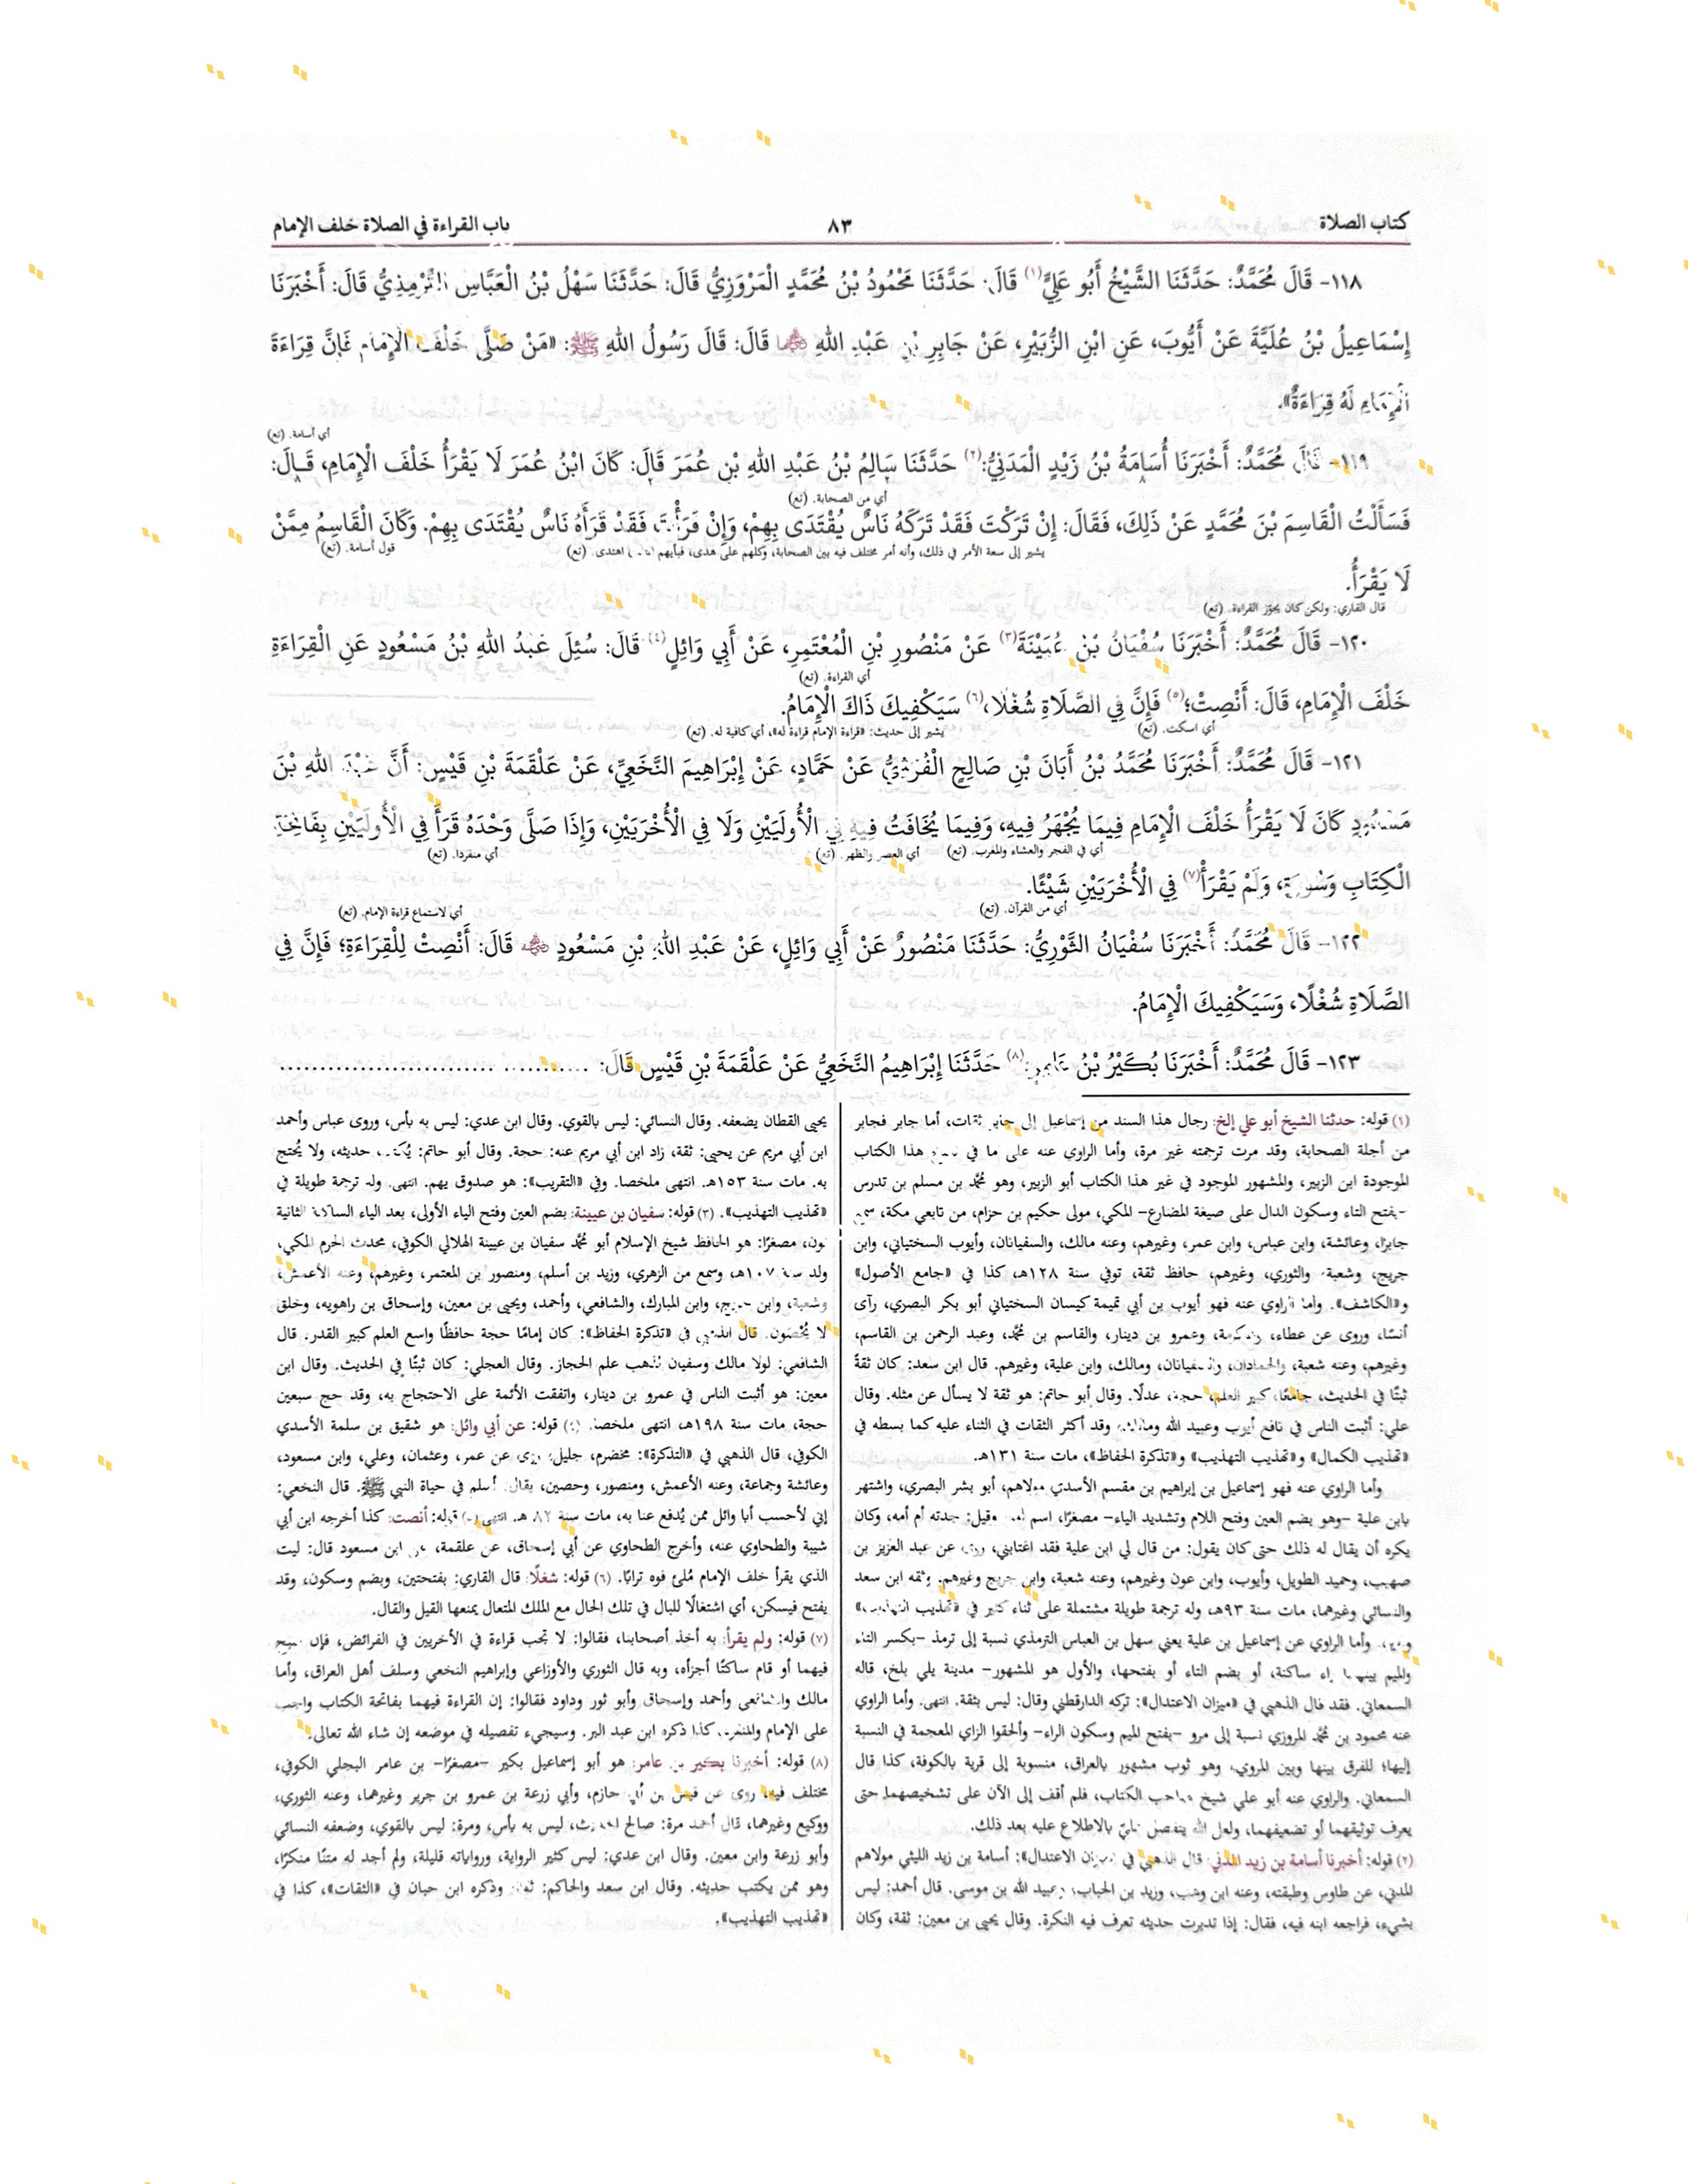 كتاب الصلاة
٨٣
باب القراءة في الصلاة خلف الإمام
١١٨- قَالَ مُحَمَّدٌ: حَدَّثَنَا الشَّيْخُ أَبُو عَلِيٍّ(١) قَالَ: حَدَّثَنَا مَحْمُودُ بْنُ مُحَمَّدٍ الْمَرْوَزِيُّ قَالَ: حَدَّثَنَا سَهْلُ بْنُ الْعَبَّاسِ التِّرْمِذِيُّ قَالَ: أَخْبَرَنَا
إِسْمَاعِيلُ بْنُ عُلَيَّةَ عَنْ أَيُّوبَ، عَنِ ابْنِ الزُّبَيْرِ، عَنْ جَابِرِ بْنِ عَبْدِ اللهِ قَالَ: قَالَ رَسُولُ اللهِ ﷺ: «مَنْ صَلَّى خَلْفَ الْإِمَامِ فَإِنَّ قِرَاءَةَ
الْإِمَامِ لَهُ قِرَاءَةٌ».
أي أسامة. (تع)
١١٩- قَالَ مُحَمَّدٌ: أَخْبَرَنَا أُسَامَةُ بْنُ زَيْدٍ الْمَدَنِيُّ:(٢) حَدَّثَنَا سَالِمُ بْنُ عَبْدِ اللهِ بْنِ عُمَرَ قَالَ: كَانَ ابْنُ عُمَرَ لَا يَقْرَأُ خَلْفَ الْإِمَامِ، قَالَ:
أي من الصحابة. (تع)
فَسَأَلْتُ الْقَاسِمَ بْنَ مُحَمَّدٍ عَنْ ذَلِكَ، فَقَالَ: إِنْ تَرَكْتَ فَقَدْ تَرَكَهُ نَاسٌ يُقْتَدَى بِهِمْ، وَإِنْ قَرَأْتَ، فَقَدْ قَرَأَهُ نَاسٌ يُقْتَدَى بِهِمْ. وَكَانَ الْقَاسِمُ مِمَّنْ
يشير إلى سعة الأمر في ذلك، وأنه أمر مختلف فيه بين الصحابة، وكلهم على هدى، فبأيهم اهتدى. (تع) قول أسامة. (تع)
لَا يَقْرَأُ.
قال القاري: ولكن كان يجوّز القراءة. (تع)
١٢٠- قَالَ مُحَمَّدٌ: أَخْبَرَنَا سُفْيَانُ بْنُ عُيَيْنَةَ(٣) عَنْ مَنْصُورِ بْنِ الْمُعْتَمِرِ، عَنْ أَبِي وَائِلٍ(٤) قَالَ: سُئِلَ عَبْدُ اللهِ بْنُ مَسْعُودٍ عَنِ الْقِرَاءَةِ
أي القراءة. (تع)
خَلْفَ الْإِمَامِ، قَالَ: أَنْصِتْ؛(٥) فَإِنَّ فِي الصَّلَاةِ شُغْلًا،(٦) سَيَكْفِيكَ ذَاكَ الْإِمَامُ.
أي اسكت. (تع) يشير إلى حديث: «قراءة الإمام قراءة له»، أي كافية له. (تع)
١٢١- قَالَ مُحَمَّدٌ: أَخْبَرَنَا مُحَمَّدُ بْنُ أَبَانَ بْنِ صَالِحٍ الْقُرَشِيُّ عَنْ حَمَّادٍ، عَنْ إِبْرَاهِيمَ النَّخَعِيِّ، عَنْ عَلْقَمَةَ بْنِ قَيْسٍ: أَنَّ عَبْدَ اللهِ بْنَ
مَسْعُودٍ كَانَ لَا يَقْرَأُ خَلْفَ الْإِمَامِ فِيمَا يُجْهَرُ فِيهِ، وَفِيمَا يُخَافَتُ فِيهِ فِي الْأُولَيَيْنِ وَلَا فِي الْأُخْرَيَيْنِ، وَإِذَا صَلَّى وَحْدَهُ قَرَأَ فِي الْأُولَيَيْنِ بِفَاتِحَةِ
أي في الفجر والعشاء والمغرب. (تع) أي العصر والظهر. (تع) أي منفردا. (تع)
الْكِتَابِ وَسُورَةٍ، وَلَمْ يَقْرَأْ(٧) فِي الْأُخْرَيَيْنِ شَيْئًا.
أي من القرآن. (تع) أي لاستماع قراءة الإمام. (تع)
١٢٢- قَالَ مُحَمَّدٌ: أَخْبَرَنَا سُفْيَانُ الثَّوْرِيُّ: حَدَّثَنَا مَنْصُورٌ عَنْ أَبِي وَائِلٍ، عَنْ عَبْدِ اللهِ بْنِ مَسْعُودٍ قَالَ: أَنْصِتْ لِلْقِرَاءَةِ؛ فَإِنَّ فِي
الصَّلَاةِ شُغْلًا، وَسَيَكْفِيكَ الْإِمَامُ.
١٢٣- قَالَ مُحَمَّدٌ: أَخْبَرَنَا بُكَيْرُ بْنُ عَامِرٍ:(٨) حَدَّثَنَا إِبْرَاهِيمُ النَّخَعِيُّ عَنْ عَلْقَمَةَ بْنِ قَيْسٍ قَالَ: ......................................
(١) قوله: حدثنا الشيخ أبو علي إلخ: رجال هذا السند من إسماعيل إلى جابر ثقات، أما جابر فجابر
من أجلة الصحابة، وقد مرت ترجمته غير مرة، وأما الراوي عنه على ما في هذا الكتاب
الموجودة ابن الزبير، والمشهور الموجود في غير هذا الكتاب أبو الزبير، وهو محمد بن مسلم بن تدرس
-بفتح التاء وسكون الدال على صيغة المضارع- المكي، مولى حكيم بن حزام، من تابعي مكة، سمع
جابرًا، وعائشة، وابن عباس، وابن عمر، وغيرهم، وعنه مالك، والسفيانان، وأيوب السختياني، وابن
جريج، وشعبة والثوري، وغيرهم، حافظ ثقة، توفي سنة ١٢٨هـ، كذا في «جامع الأصول»
و«الكاشف». وأما الراوي عنه فهو أيوب بن أبي تميمة كيسان السختياني أبو بكر البصري، رأى
أنسًا، وروى عن عطاء، وعكرمة، وعمرو بن دينار، والقاسم بن محمد، وعبد الرحمن بن القاسم،
وغيرهم، وعنه شعبة، والحمادان، والسفيانان، ومالك، وابن علية، وغيرهم. قال ابن سعد: كان ثقةً
ثبتًا في الحديث، جامعًا، كبير العلم، حجة، عدلًا. وقال أبو حاتم: هو ثقة لا يسأل عن مثله. وقال
علي: أثبت الناس في نافع أيوب وعبيد الله ومالك، وقد أكثر الثقات في الثناء عليه كما بسطه في
«تهذيب الكمال» و«تهذيب التهذيب» و«تذكرة الحفاظ»، مات سنة ١٣١هـ.
وأما الراوي عنه فهو إسماعيل بن إبراهيم بن مقسم الأسدي مولاهم، أبو بشر البصري، واشتهر
بابن علية -وهو بضم العين وفتح اللام وتشديد الياء- مصغرًا، اسم أمه، وقيل: جدته أم أمه، وكان
يكره أن يقال له ذلك حتى كان يقول: من قال لي ابن علية فقد اغتابني، روى عن عبد العزيز بن
صهيب، وحميد الطويل، وأيوب، وابن عون وغيرهم، وعنه شعبة، وابن جريج وغيرهم. وثقه ابن سعد
والنسائي وغيرهما، مات سنة ٩٣هـ، وله ترجمة طويلة مشتملة على ثناء كثير في «تهذيب التهذيب»
وأما الراوي عن إسماعيل بن علية يعني سهل بن العباس الترمذي نسبة إلى ترمذ -بكسر التاء
والميم بينهما راء ساكنة، أو بضم التاء أو بفتحها، والأول هو المشهور- مدينة يلي بلخ، قاله
السمعاني. فقد قال الذهبي في «ميزان الاعتدال»: تركه الدارقطني وقال: ليس بثقة. انتهى. وأما الراوي
عنه محمود بن محمد المروزي نسبة إلى مرو -بفتح الميم وسكون الراء- وألحقوا الزاي المعجمة في النسبة
إليها؛ للفرق بينها وبين المروي، وهو ثوب مشهور بالعراق، منسوبة إلى قرية بالكوفة، كذا قال
السمعاني. والراوي عنه أبو علي شيخ صاحب الكتاب، فلم أقف إلى الآن على تشخيصهما حتى
يعرف توثيقهما أو تضعيفهما، ولعل الله يتفضل عليّ بالاطلاع عليه بعد ذلك.
(٢) قوله: أخبرنا أسامة بن زيد المدني: قال الذهبي في «ميزان الاعتدال»: أسامة بن زيد الليثي مولاهم
المدني، عن طاوس وطبقته، وعنه ابن وهب، وزيد بن الحباب، وعبيد الله بن موسى. قال أحمد: ليس
بشيء، فراجعه ابنه فيه، فقال: إذا تدبرت حديثه تعرف فيه النكرة. وقال يحيى بن معين: ثقة، وكان
يحيى القطان يضعفه. وقال النسائي: ليس بالقوي. وقال ابن عدي: ليس به بأس، وروى عباس وأحمد
ابن أبي مريم عن يحيى: ثقة، زاد ابن أبي مريم عنه: حجة. وقال أبو حاتم: يُكتب حديثه، ولا يُحتج
به. مات سنة ١٥٣هـ. انتهى ملخصا. وفي «التقريب»: هو صدوق يهم. انتهى. وله ترجمة طويلة في
«تهذيب التهذيب». (٣) قوله: سفيان بن عيينة: بضم العين وفتح الياء الأولى، بعد الياء الساكنة الثانية
نون، مصغرًا: هو الحافظ شيخ الإسلام أبو محمد سفيان بن عيينة الهلالي الكوفي، محدث الحرم المكي،
ولد سنة ١٠٧هـ، وسمع من الزهري، وزيد بن أسلم، ومنصور بن المعتمر، وغيرهم، وعنه الأعمش،
وشعبة، وابن جريج، وابن المبارك، والشافعي، وأحمد، ويحيى بن معين، وإسحاق بن راهويه، وخلق
لا يُحصون. قال الذهبي في «تذكرة الحفاظ»: كان إمامًا حجة حافظًا واسع العلم كبير القدر. قال
الشافعي: لولا مالك وسفيان لذهب علم الحجاز. وقال العجلي: كان ثبتًا في الحديث. وقال ابن
معين: هو أثبت الناس في عمرو بن دينار، واتفقت الأئمة على الاحتجاج به، وقد حج سبعين
حجة، مات سنة ١٩٨هـ، انتهى ملخصا. (٤) قوله: عن أبي وائل: هو شقيق بن سلمة الأسدي
الكوفي، قال الذهبي في «التذكرة»: مخضرم، جليل، روى عن عمر، وعثمان، وعلي، وابن مسعود،
وعائشة وجماعة، وعنه الأعمش، ومنصور، وحصين، يقال: أسلم في حياة النبي ﷺ. قال النخعي:
إني لأحسب أبا وائل ممن يُدفع عنا به، مات سنة ٨٢ هـ. انتهى (٥) قوله: أنصت: كذا أخرجه ابن أبي
شيبة والطحاوي عنه، وأخرج الطحاوي عن أبي إسحاق، عن علقمة، عن ابن مسعود قال: ليت
الذي يقرأ خلف الإمام مُلئ فوه ترابًا. (٦) قوله: شغلًا: قال القاري: بفتحتين، وبضم وسكون، وقد
يفتح فيسكن، أي اشتغالًا للبال في تلك الحال مع الملك المتعال يمنعها القيل والقال.
(٧) قوله: ولم يقرأ: به أخذ أصحابنا، فقالوا: لا تجب قراءة في الأخريين في الفرائض، فإن سبح
فيهما أو قام ساكتًا أجزأه، وبه قال الثوري والأوزاعي وإبراهيم النخعي وسلف أهل العراق، وأما
مالك والشافعي وأحمد وإسحاق وأبو ثور وداود فقالوا: إن القراءة فيهما بفاتحة الكتاب واجب
على الإمام والمنفرد، كذا ذكره ابن عبد البر. وسيجيء تفصيله في موضعه إن شاء الله تعالى.
(٨) قوله: أخبرنا بكير بن عامر: هو أبو إسماعيل بكير -مصغرًا- بن عامر البجلي الكوفي،
مختلف فيه، روى عن قيس بن أبي حازم، وأبي زرعة بن عمرو بن جرير وغيرهما، وعنه الثوري،
ووكيع وغيرهما، قال أحمد مرة: صالح الحديث، ليس به بأس، ومرة: ليس بالقوي، وضعفه النسائي
وأبو زرعة وابن معين. وقال ابن عدي: ليس كثير الرواية، ورواياته قليلة، ولم أجد له متنًا منكرًا،
وهو ممن يكتب حديثه. وقال ابن سعد والحاكم: ثقة. وذكره ابن حبان في «الثقات»، كذا في
«تهذيب التهذيب».